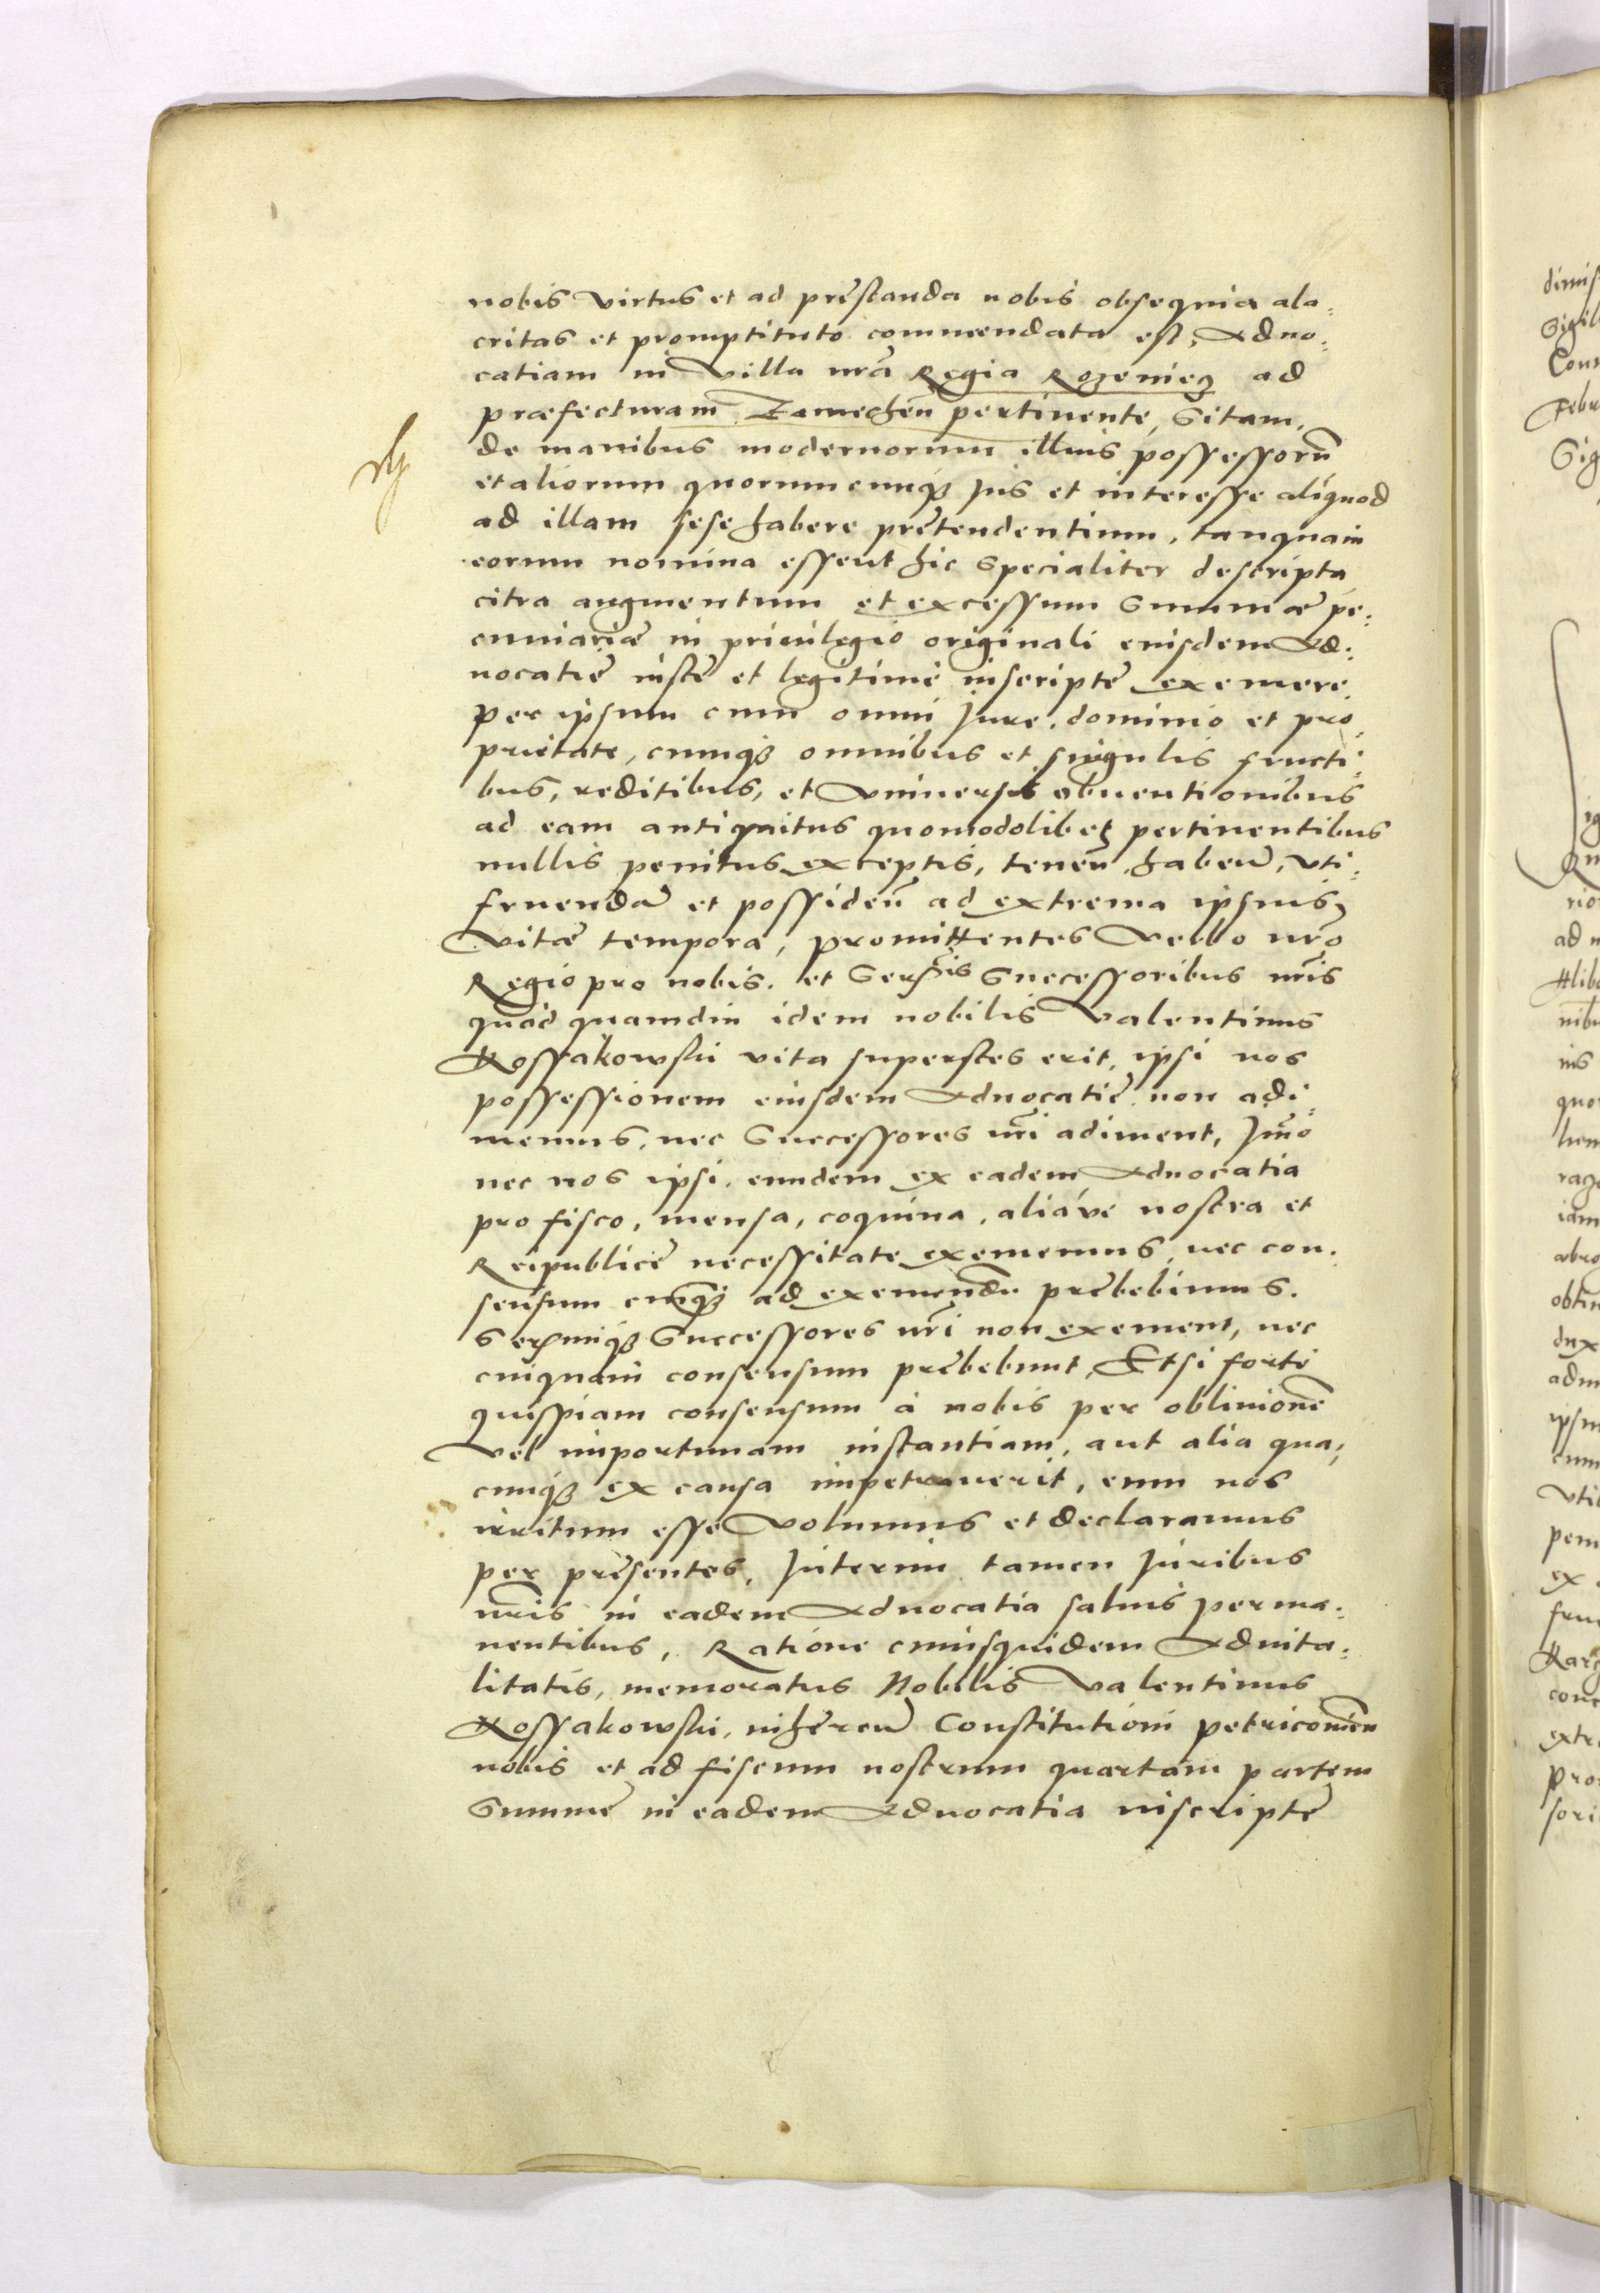 nobis virtus et ad pręstanda nobis obsequia ala-
critas et promptituto commendata est, Aduo-
catiam in Villa nrã Regia Rozenieg ad
præfecturam Zamechen̄ pertinente, Sitam,
de manibus modernorum illius possessorũ
et aliorum quorumcunq3 Jus et interesse aliquod
ad illam sese habere prętendentium, tanquam
eorum nomina essent hic Specialiter descripta
citra augmentum et excessum Summæ pe-
cuniariæ in priuilegio originali eiusdem Ad-
uocatię iuste et legitime inscriptę exemere
per ipsum cum omni Jure, dominio et pro-
prietate, cumq3 omnibus et singulis fructi-
bus, reditibus, et Vniuersis obuentionibus
ad eam antiquitus quomodolibet pertinentibus
nullis penitus exceptis, tenen̄, haben̄, vti-
fruendã et possiden̄ ad extrema ipsius
Vitæ tempora, promittentes Verbo nrõ
Regio pro nobis, et Serssis Successoribus nr̃is
quòd quamdiu idem nobilis Valentinus
Kossakowski vita superstes erit, ipsi nos
possessionem eiusdem Aduocatię non adi-
memus, nec Successores nr̃i adiment, Jm̃o
nec nos ipsi, eundem ex eadem Aduocatia
pro fisco, mensa, coquina, aliáve nostra et
Reipublicę necessitate eximemus, nec con-
sensum cuiq3 ad eximendũ prębebimus.
Serssmiq3 Successores nr̃i non exement, nec
cuiquam consensum prębebunt, Et si forte
quispiam consensum à nobis per obliuionẽ
Vel importunam instantiam, aut alia qua-
cunq3 ex causa impetrauerit, eum nos
irritum esse Volumus et declaramus
per pręsentes, Jnterim tamen Juribus
nr̃is in eadem Aduocatia saluis perma-
nentibus, Ratione cuiusquidem Aduita-
litatis, memoratus Nobilis Valentinus
Kossakowski, inhęren̄ Constitutioni petriconien̄
nobis et ad fiscum nostrum quartam partem
Summę in eadem Aduocatia inscriptę